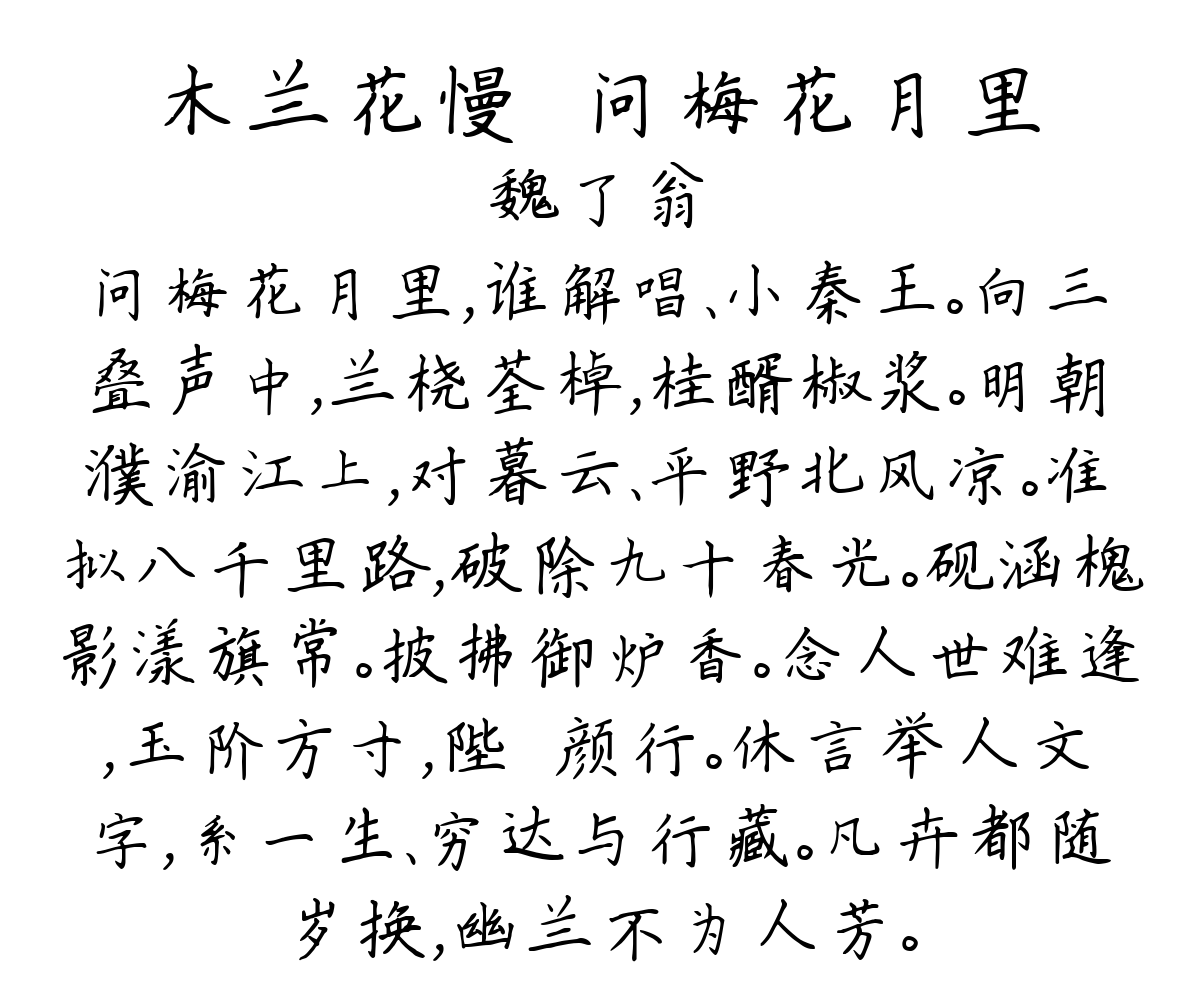 木兰花慢 问梅花月里
魏了翁
问梅花月里,谁解唱、小秦王。向三
叠声中,兰桡荃棹,桂醑椒浆。明朝
濮渝江上,对暮云、平野北风凉。准
拟八千里路,破除九十春光。砚涵槐
影漾旗常。披拂御炉香。念人世难逢
,玉阶方寸,陛 颜行。休言举人文
字,系一生、穷达与行藏。凡卉都随
岁换,幽兰不为人芳。